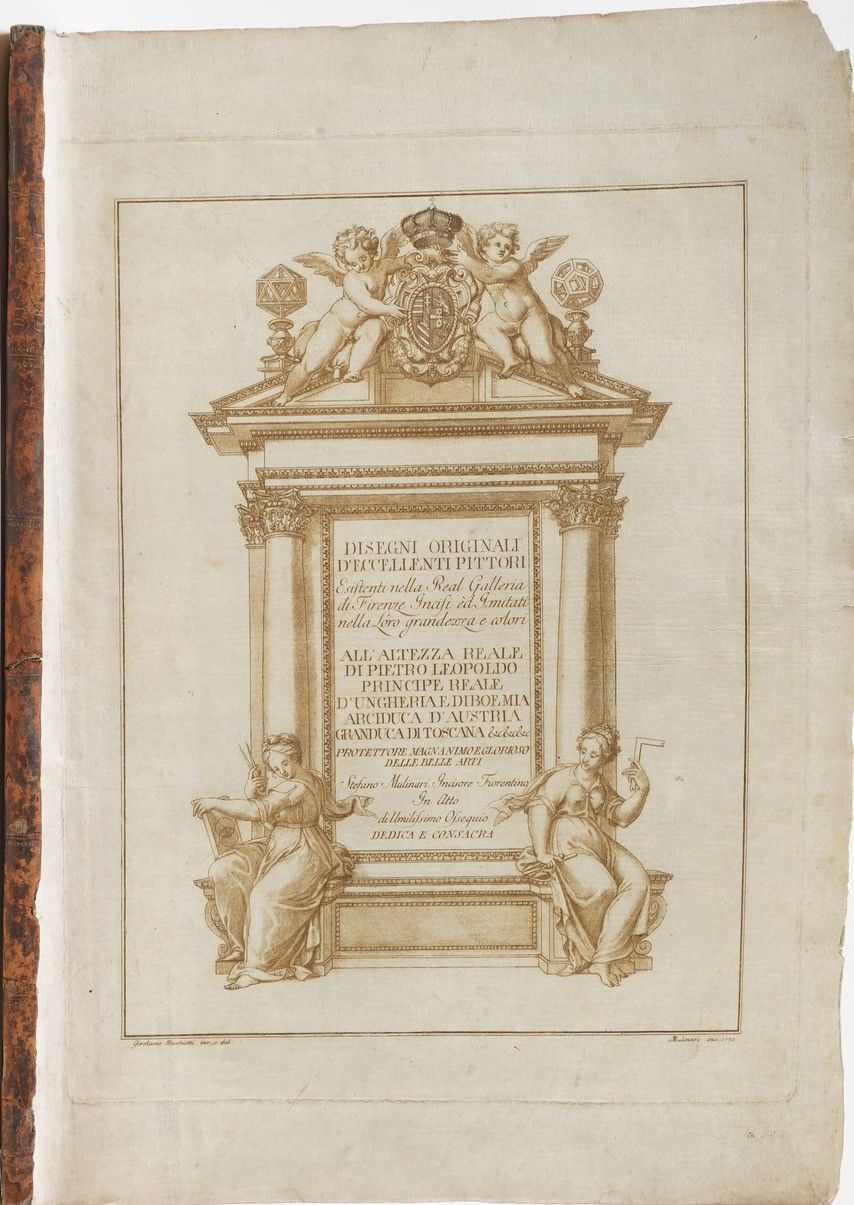 DISEGNI ORIGINALI
D'ECCELLENTI PITTORI
Esistenti nella Real Galleria
di Firenze Incisi èd Imitati
nella Loro grandezza e colori
ALL'ALTEZZA REALE
DI PIETRO LEOPOLDO
PRINCIPE REALE
D'UNGHERIA E DI BOEMIA
ARCIDUCA D'AUSTRIA
GRANDUCA DI TOSCANA &c &c &c
PROTETTORE MAGNANIMO E GLORIOSO
DELLE BELLE ARTI
Stefano Mulinari Incisore Fiorentino
In Atto
di Umilissimo Ossequio
DEDICA E CONSACRA
Girolamo inv. e del.
Mulinari inci.